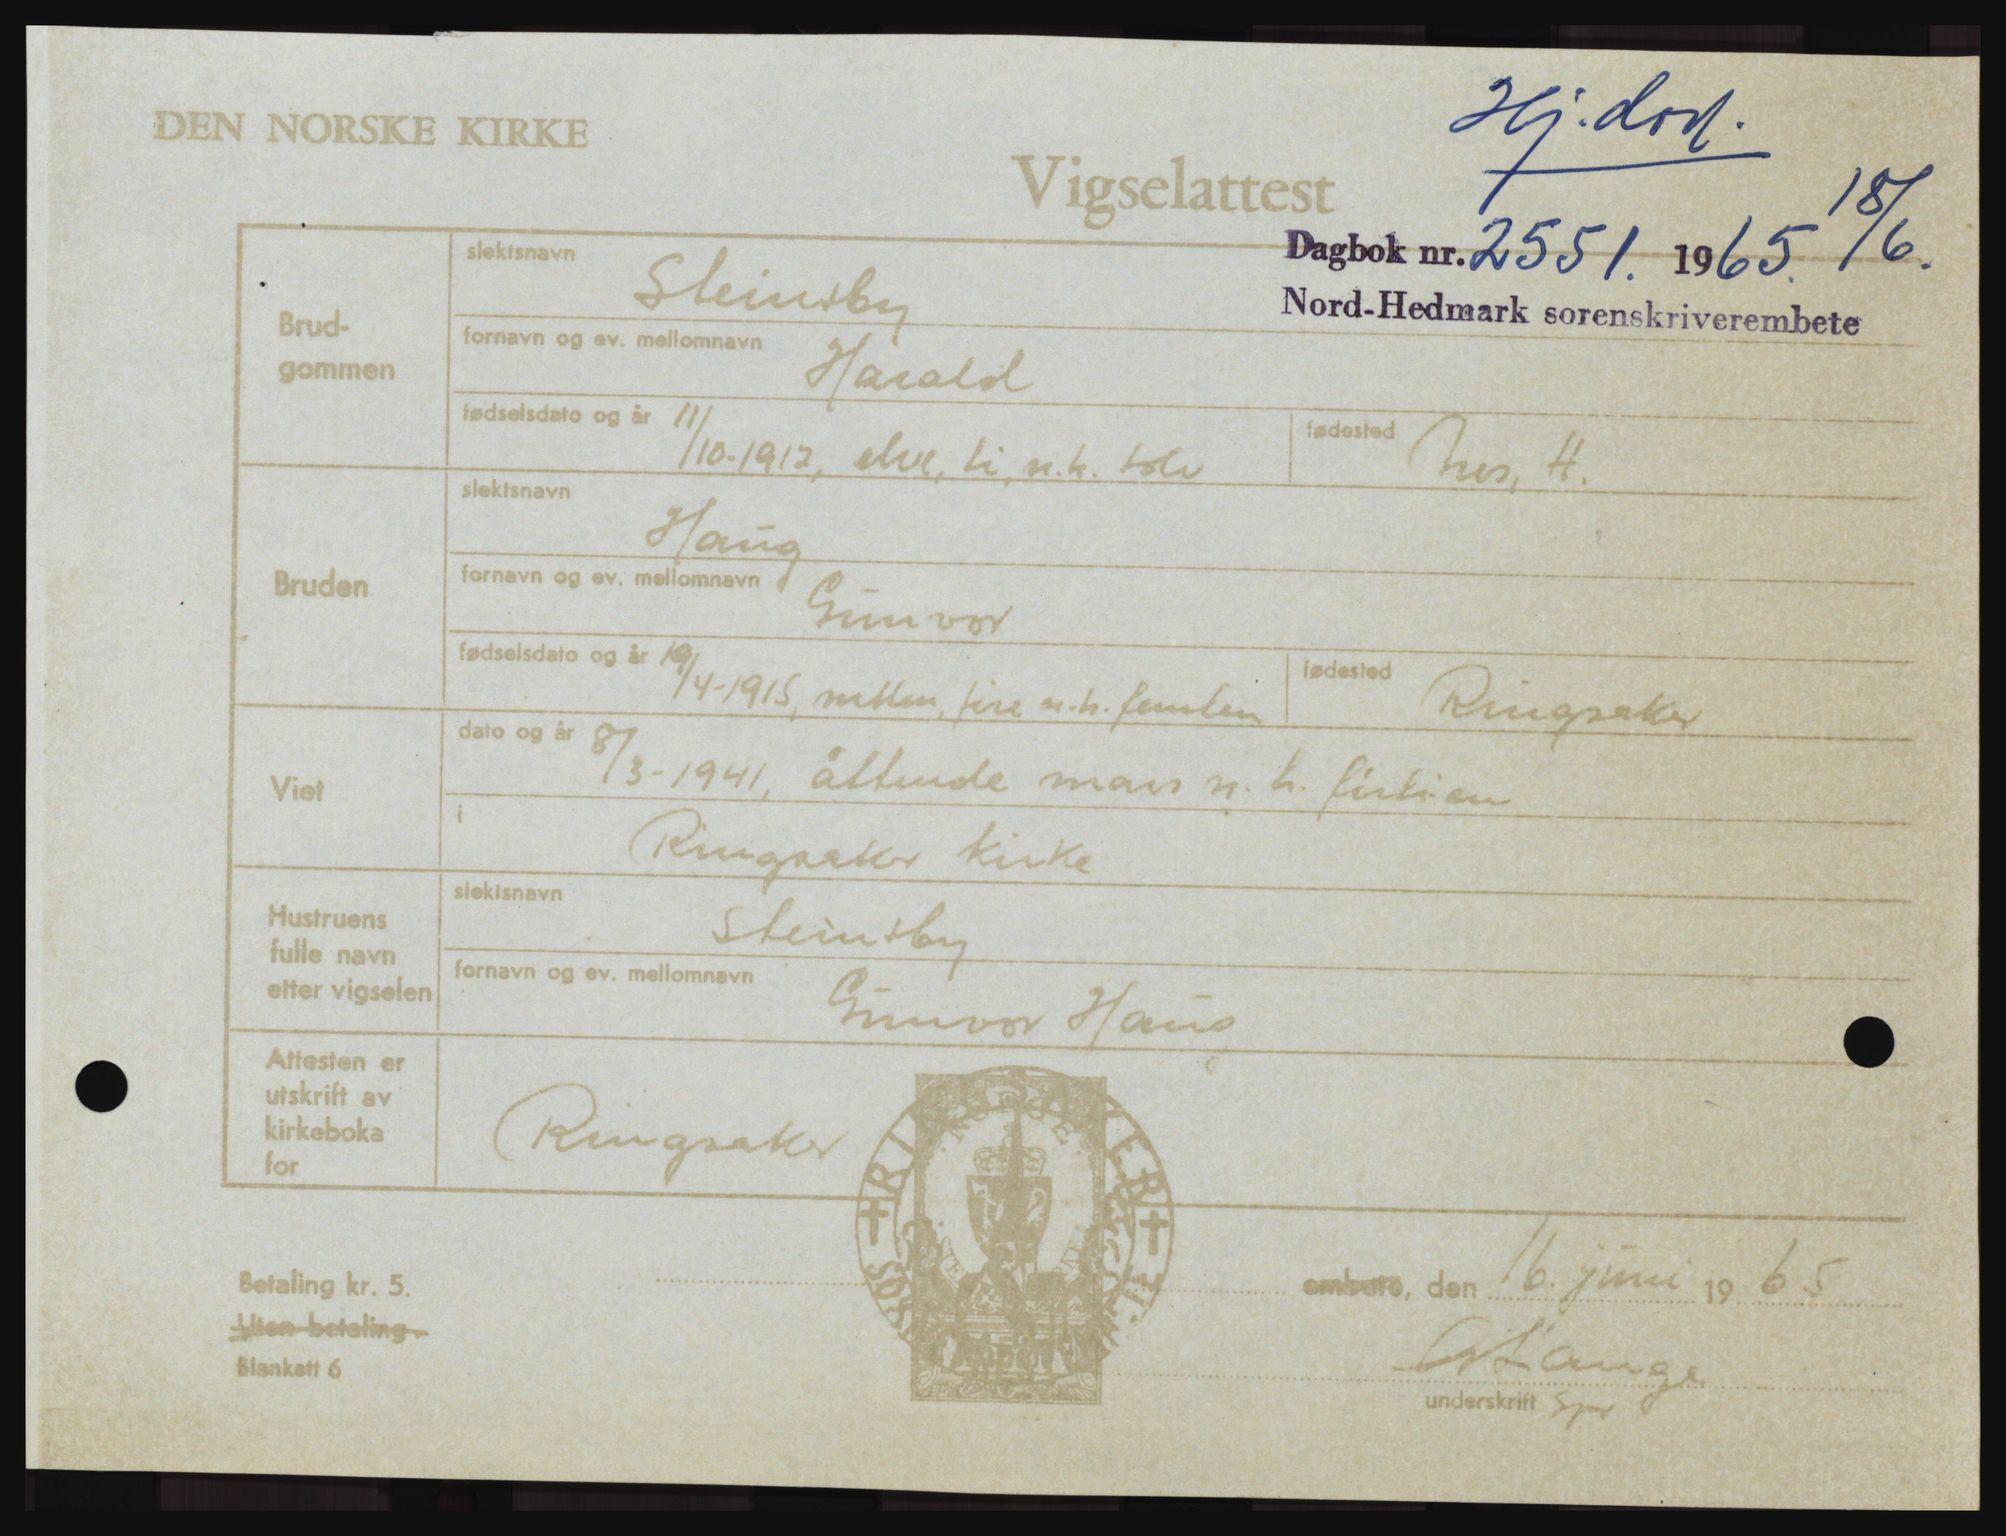 DEN NORSKE KIRKE
Hj. dok.
Vigselattest
18/6.
Dagbok nr. 2551. 1965.
Nord-Hedmark sorenskriverembete
Brud-
gommen
slektsnavn
Steinsby
fornavn og ev. mellomnavn
Harald
fødselsdato og år 11/10-1912, elve, ti, n.h. tolv
fødested Nes, H.
Bruden
slektsnavn
Haug
fornavn og ev. mellomnavn
Gunvor
fødselsdato og år 19/4-1915, nitten, fire n.h. femten
fødested Ringsaker
Viet
dato og år 8/3-1941, åttende mars n.h. førtien
i
Ringsaker kirke
Hustruens
fulle navn
etter vigselen
slektsnavn
Steinsby
fornavn og ev. mellomnavn
Gunvor Haug
Attesten er
utskrift av
kirkeboka
for
Ringsaker
Betaling kr. 5.
Uten betaling.
Blankett 6
embete, den 16. juni 1965
underskrift Spr